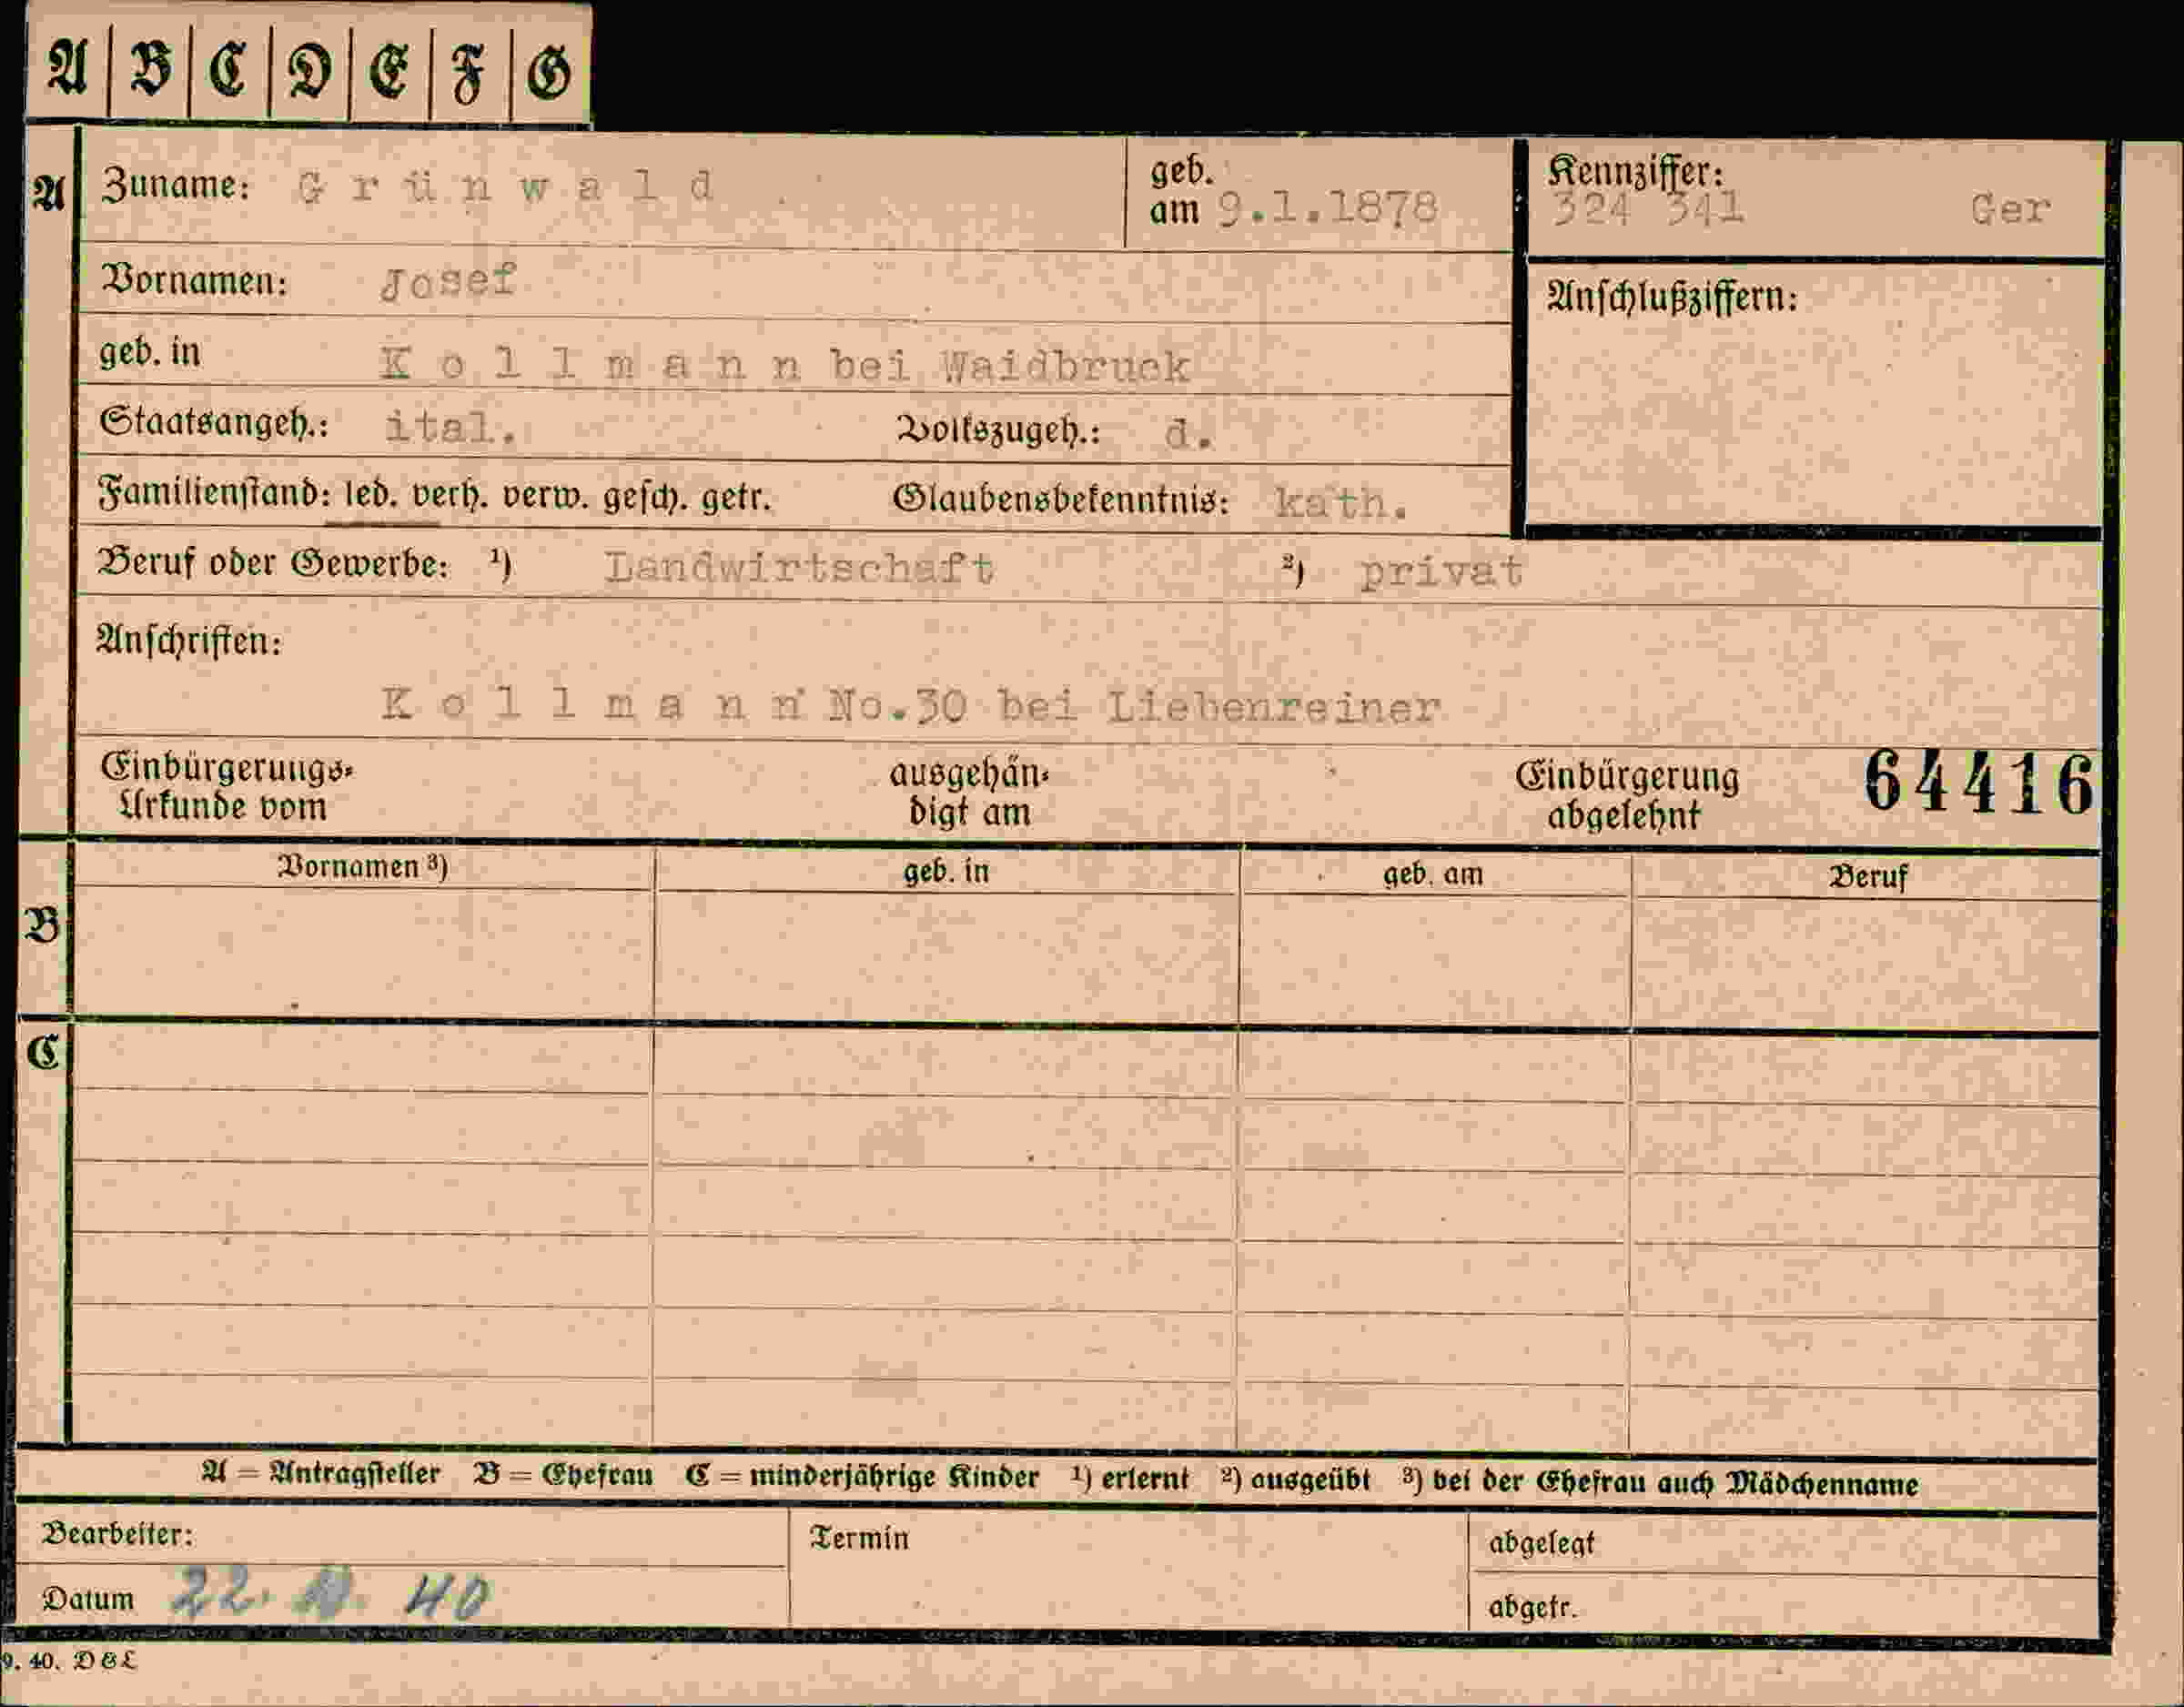 A B C D E F G
A Zuname: G r ü n w a l d geb. am 9.1.1878 Kennziffer: 324 341 Ger
Vornamen: Josef Anschlußziffern:
geb. in K o l l m a n n bei Waidbruck
Staatsangeh.: ital. Volkszugeh.: d.
Familienstand: led. verh. verw. gesch. getr. Glaubensbekenntnis: kath.
Beruf oder Gewerbe: ¹) Landwirtschaft ²) privat
Anschriften:
K o l l m a n n No.30 bei Liebenreiner
Einbürgerungs- ausgehän- Einbürgerung 64416
Urkunde vom digt am abgelehnt
Vornamen ³) geb. in geb. am Beruf
B
C
A = Antragsteller B = Ehefrau C = minderjährige Kinder ¹) erlernt ²) ausgeübt ³) bei der Ehefrau auch Mädchenname
Bearbeiter: Termin abgelegt
Datum 22. 40 abgetr.
9. 40. D&L